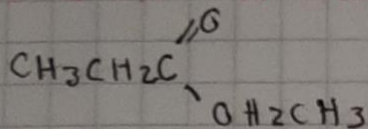 O
CH3CH2C
OH2CH3